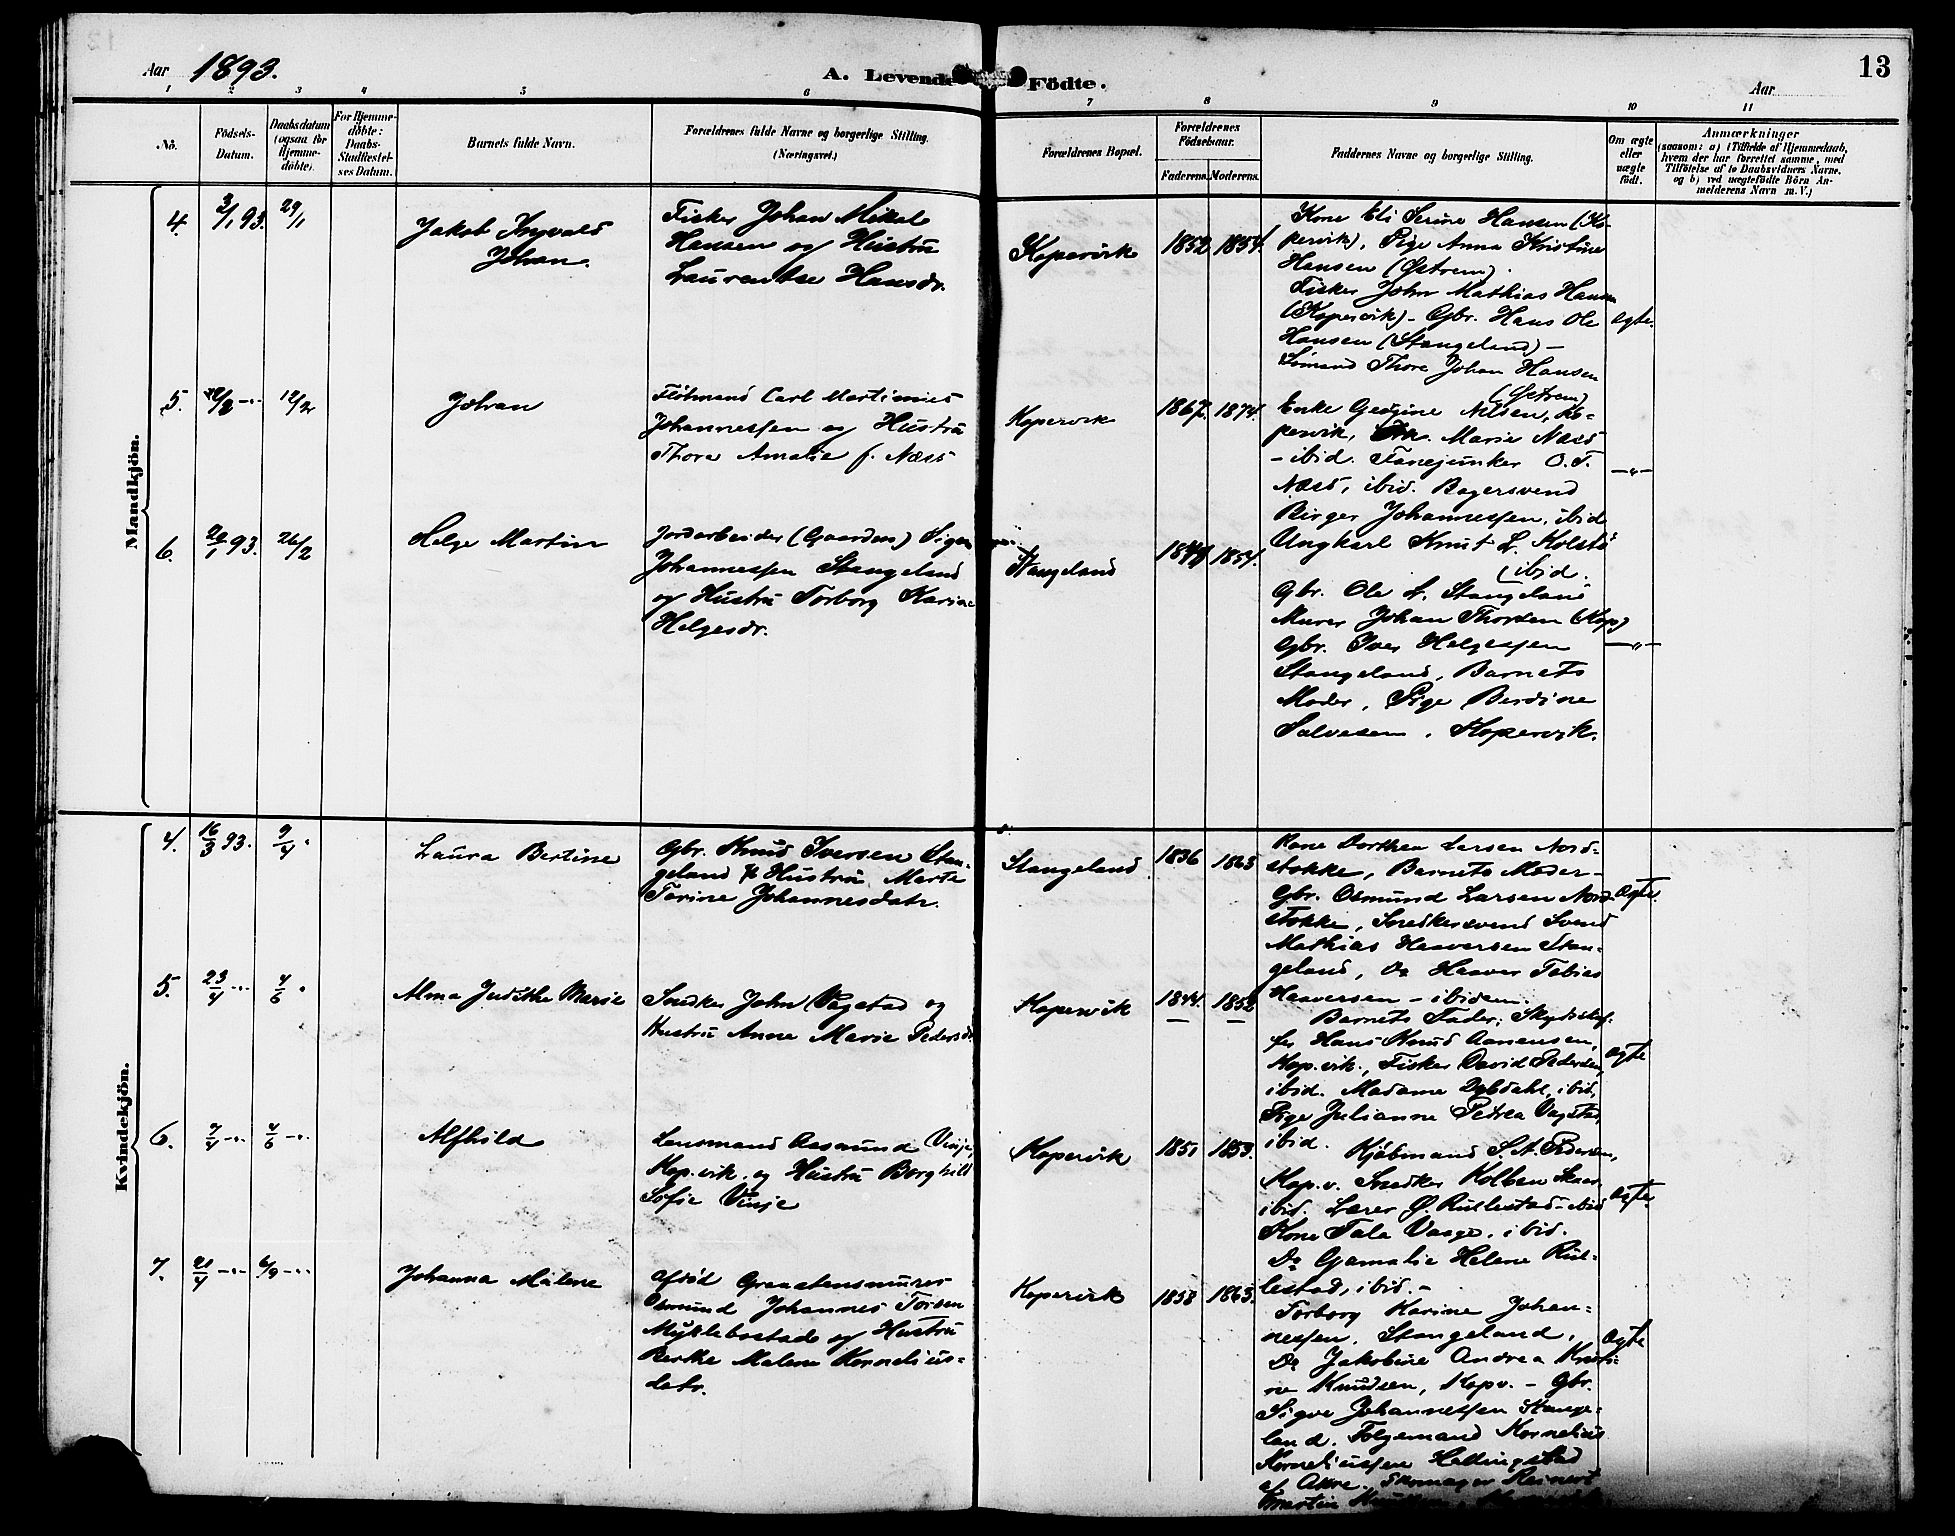 Aar 1893.
A. Levende Födte.
13
Aar
1 2 3 4 5 6 7 8 9 10 11
No.
Födsels-
Datum.
Daabsdatum
(ogsaa for
Hjemme-
döbte).
For Hjemme-
döbte:
Daabs-
Stadfæstel-
ses Datum.
Barnets fulde Navn.
Forældrenes fulde Navne og borgerlige Stilling.
(Næringsvei.)
Forældrenes Bopæl.
Forældrenes
Födselsaar.
Faderens. Moderens.
Faddernes Navne og borgerlige Stilling.
Om ægte
eller
uægte
födt.
Anmærkninger
(saasom: a) i Tilfælde af Hjemmedaab,
hvem der har forrettet samme, med
Tilföielse af to Daabsvidners Navne.
og b) ved uægtefödte Börn An-
melderens Navn m. V.)
Mandkjön.
4. 3/1 93. 29/1
Jakob Ingvald
Johan.
Fisker Johan Mikal
Hansen og Hustru
Laurentse Hansdr.
Kopervik 1852 1854.
Kone Eli Serine Hansen (Ko-
pervik), Pige Anna Kristine
Hansen (Østrem).
Fisker John Mathias Hansen
(Kopervik) - Gbr. Hans Ole
Hansen (Stangeland) -
Sömand Thore Johan Hansen
(Østrem)
ægte.
5. /2 -"- 12/2
Johan
Carl Martinius
Johannessen og Hustru
Thora Amalie f. Næss
Kopervik 1867. 1874.
Enke Georgine Nilsen, Ko-
pervik, Marie Næss
- ibid. Fanejunker O. T.
Næss, ibid. Bagersvend
Birger Johannessen, ibid
Ungkarl Knut L. Kolstö
(ibid.
-"-
6. 26/1 93. 26/2
Helge Martin
Jordarbeider (Gaardm.)
Johannessen Stangeland
og Hustru Torborg Karine
Helgesdr.
Stangeland 1854.
Gbr. Ole L. Stangeland
Murer Johan Thorsen (Kop.)
Gbr. Iver Helgessen
Stangeland, Barnets
Moder, Pige Berdine
Salvesen, Kopervik.
-"-
Kvindekjön.
4. 16/3 93. 9/4
Laura Bertine
Gbr. Knud Iversen Stan-
geland & Hustru Marte
Torine Johannesdatr.
Stangeland 1836 1863
Kone Dorthea Larsen Nord-
stokke, Barnets Moder -
Gbr. Osmund Larsen Nord-
stokke, Snedkersvend Svend
Mathias Haaversen Stan-
geland, Do Haaver Tobias
Haaversen - ibidem.
Ægte.
5. 23/4 -"- 4/6
Alma Judithe Marie
Snedker John Vagstad og
Hustru Anne Marie Pedersd.
Kopervik 1844. 1852
Barnets Fader; Skydsskaf-
fer Hans Knud Aanensen,
Kop.vik., Fisker David Pedersen,
ibid. Madame Dybdahl, ibid,
Pige Julianne Petrea Vagstad,
ibid.
ægte
6. 7/4 -"- 4/6 -"-
Alfhild
Lensmand Aasmund Vinje,
Kop.vik. og Hustru Borghild
Sofie Vinje
Kopervik 1851 1853.
Kjöbmand S. A. Pedersen,
Kop.v. Snedker Kolben Skaar,
ibid. Lærer Ø. Rullestad - ibid
Kone Tala Vaage, ibid.
Do Gjamalie Helene Rul-
lestad, ibid. -
ægte.
7. 21/4 -"- 6/9 -"-
Johanna Malene
afdöd
Osmund Johannes Torsen
Myklebostad og Hustru
Berthe Malene Kornelius-
datr.
Kopervik 1858 1863.
Torborg Karine Johan-
nessen, Stangeland,
Do Jakobine Andrea Kristi-
ne Knudsen, Kopv. - Gbr.
Sigve Johannessen Stange-
land. Kornelius
Korneliussen Hellingstad
af Akre. Skomager Reinert
Martin
ægte